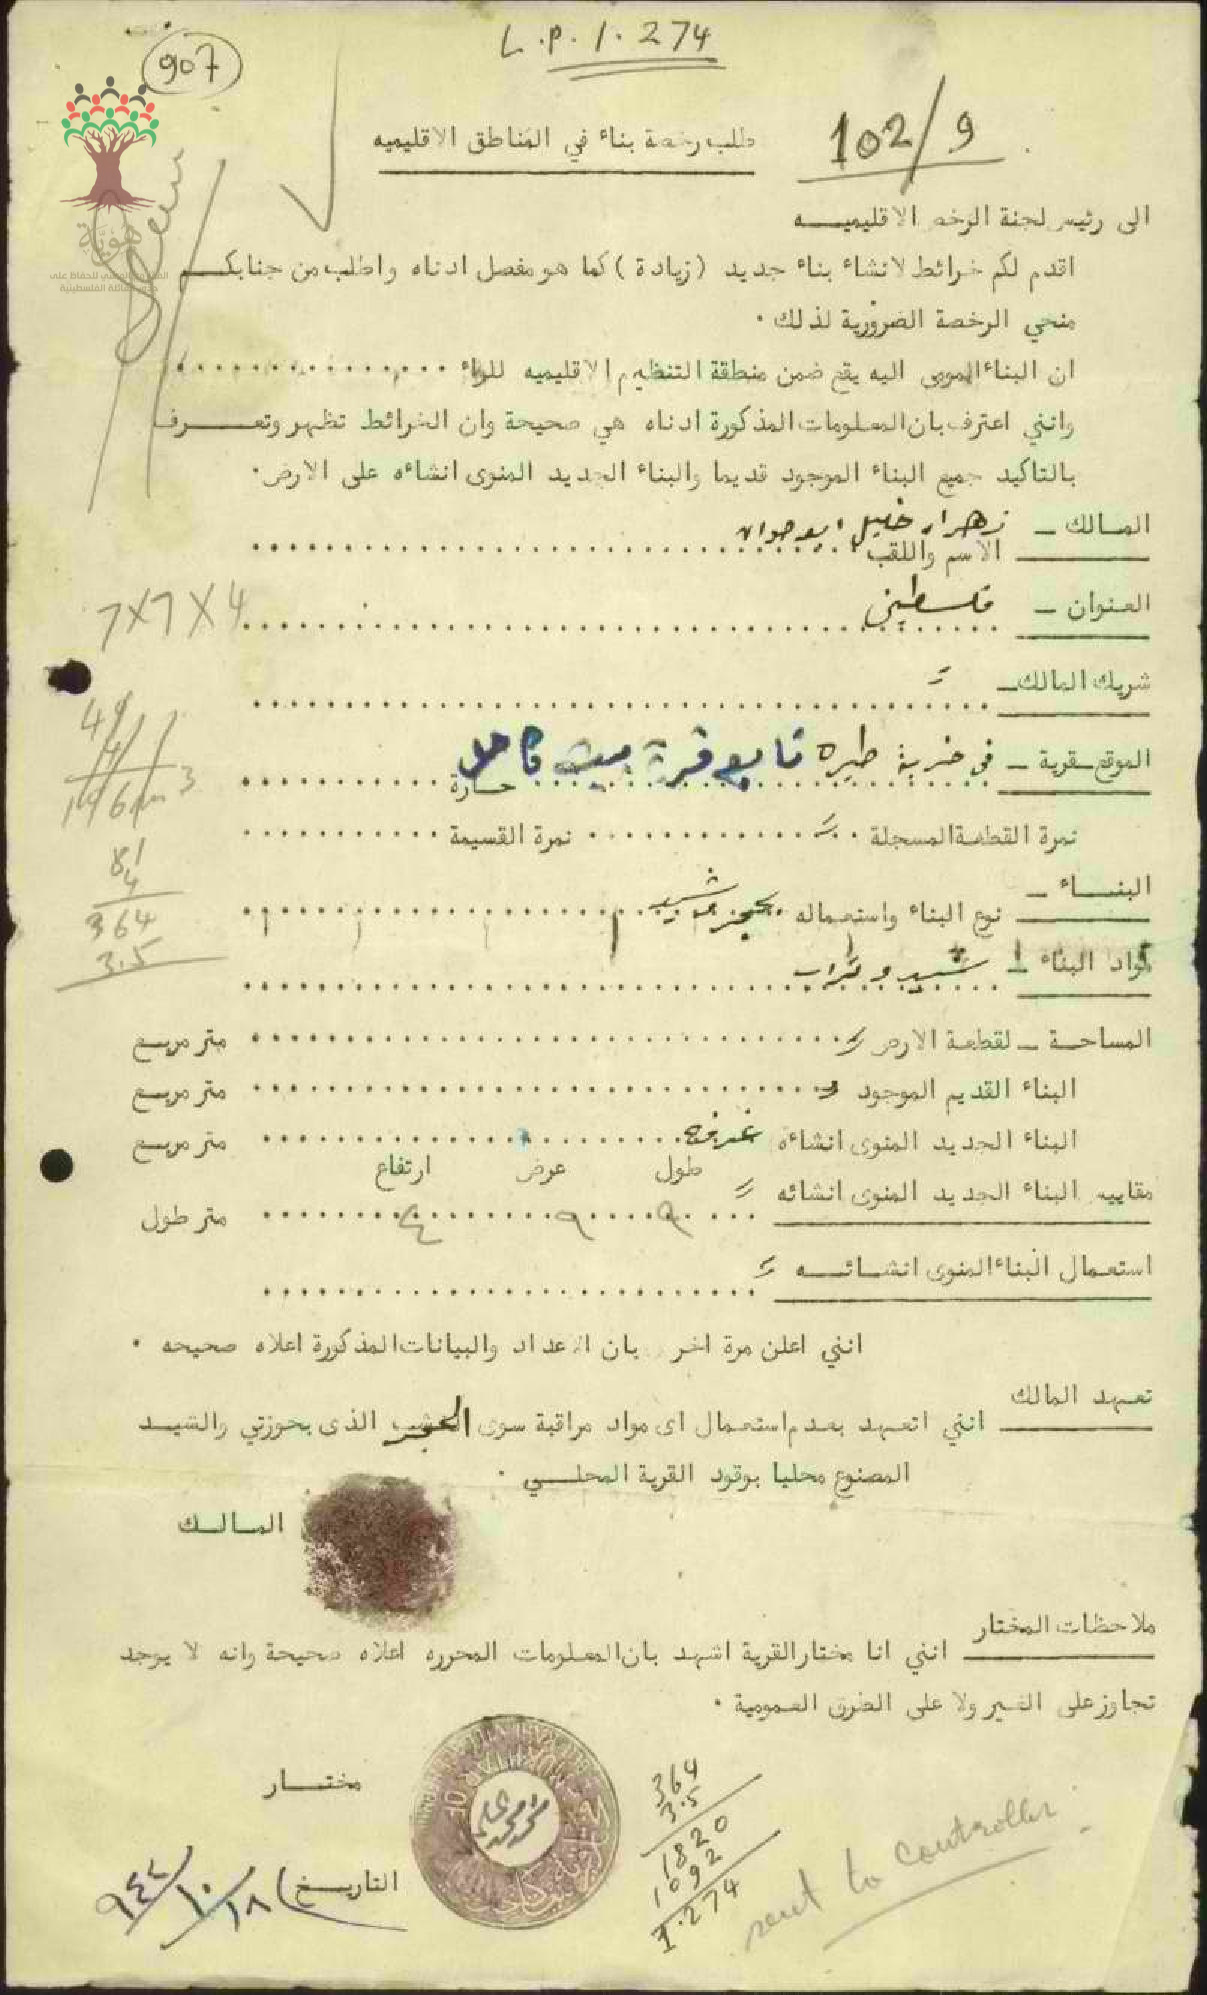 L.P. 1.274
907
102/9
طلب رخصة بناء في المناطق الاقليميه
الى رئيس لجنة الرخص الاقليميـــه
هوية
اقدم لكم خرائط لانشاء بناء جديد (زيادة) كما هو مفصل ادناه واطلب من جنابكـــم
منحي الرخصة الضرورية لذلك .
ان البناء المومى اليه يقع ضمن منطقة التنظيم الاقليميه للواء
وانني اعترف بان المعلومات المذكورة ادناه هي صحيحة وان الخرائط تظهر وتعـــرف
بالتاكيد جميع البناء الموجود قديما والبناء الجديد المنوى انشاءه على الارض.
المالك – زهراء خليل ابو
الاسم واللقب
العنوان – فلسطيني
7X7X4
شريك المالك –
49
4
196 m3
الموقع – قرية – في خربة طيره تابع قرية بيت كاحل
حارة
نمرة القطعة المسجلة نمرة القسيمة
81
4
364
3.5
البنـــاء –
نوع البناء واستعماله بحجر وشيد
مواد البناء – شيد وتراب
المساحة – لقطعة الارض متر مربع
البناء القديم الموجود متر مربع
البناء الجديد المنوى انشاءه غرفة متر مربع
طول عرض ارتفاع
مقاييه البناء الجديد المنوى انشائه ٩ ٩ ٤ متر طول
استعمال البناء المنوى انشائـــه
انني اعلن مرة اخر بان الاعداد والبيانات المذكورة اعلاه صحيحه .
تعهد المالك
انني اتعهد بعدم استعمال اى مواد مراقبة سوى الحجر الذى بحوزتي والشيـــد
المصنوع محليا بوقود القرية المحلـــي .
المالـــك
ملاحظات المختار
انني انا مختار القرية اشهد بان المعلومات المحرره اعلاه صحيحة وانه لا يوجد
تجاوز على الغير ولا على الطرق العمومية .
مختـــار
MUKHTAR OF
364
3.5
1820
1092
1.274
sent to controller
التاريـــخ ١٨/١٠/٩٤٤